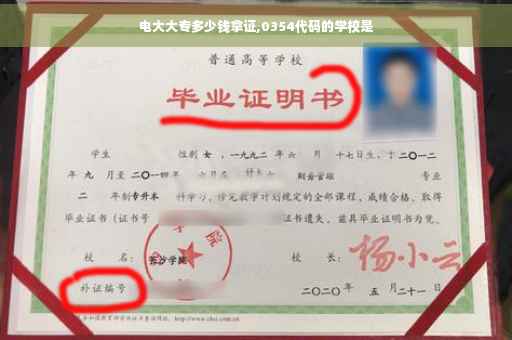 电大大专多少钱拿证,0354代码的学校是
普通高等学校
毕业证明书
学生 性别 女 ,一九九二 年 六 月 十七日生，于 二〇一二
年 九 月至 二〇一四 年 六月在 财务管理 专业
二 年制 专升本 科学习，修完教学计划规定的全部课程，成绩合格，取得
毕业证书（证书号 证书遗失，兹具毕业证明书为凭。
校 名： 长沙学院 校 长： 杨小云
补证编号 二〇二〇 年 五 月 二十一 日
http://www.chsi.com.cn